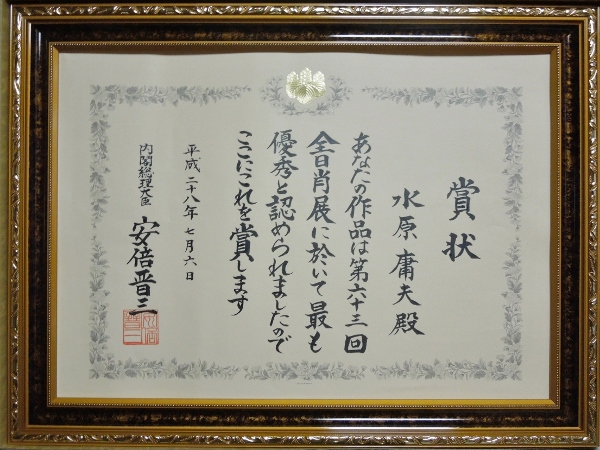 賞状
水原庸夫殿
あなたの作品は第六十三回
全日肖展に於いて最も
優秀と認められましたので
ここにこれを賞します
平成二十八年七月六日
内閣総理大臣
安倍晋三